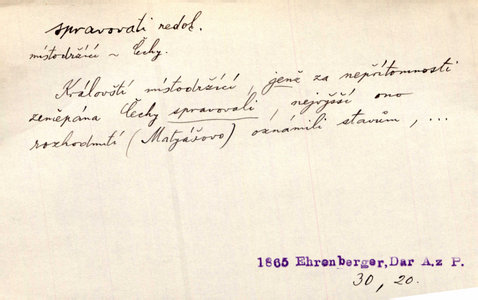 spravovati nedok.
místodržící ~ Čechy.
Královští místodržící, jenž za nepřítomnosti
zeměpána Čechy spravovali, nejvyšší ono
rozhodnutí (Matyášovo) oznámili stavům, ...
1865 Ehrenberger, Dar A. z P.
30, 20.